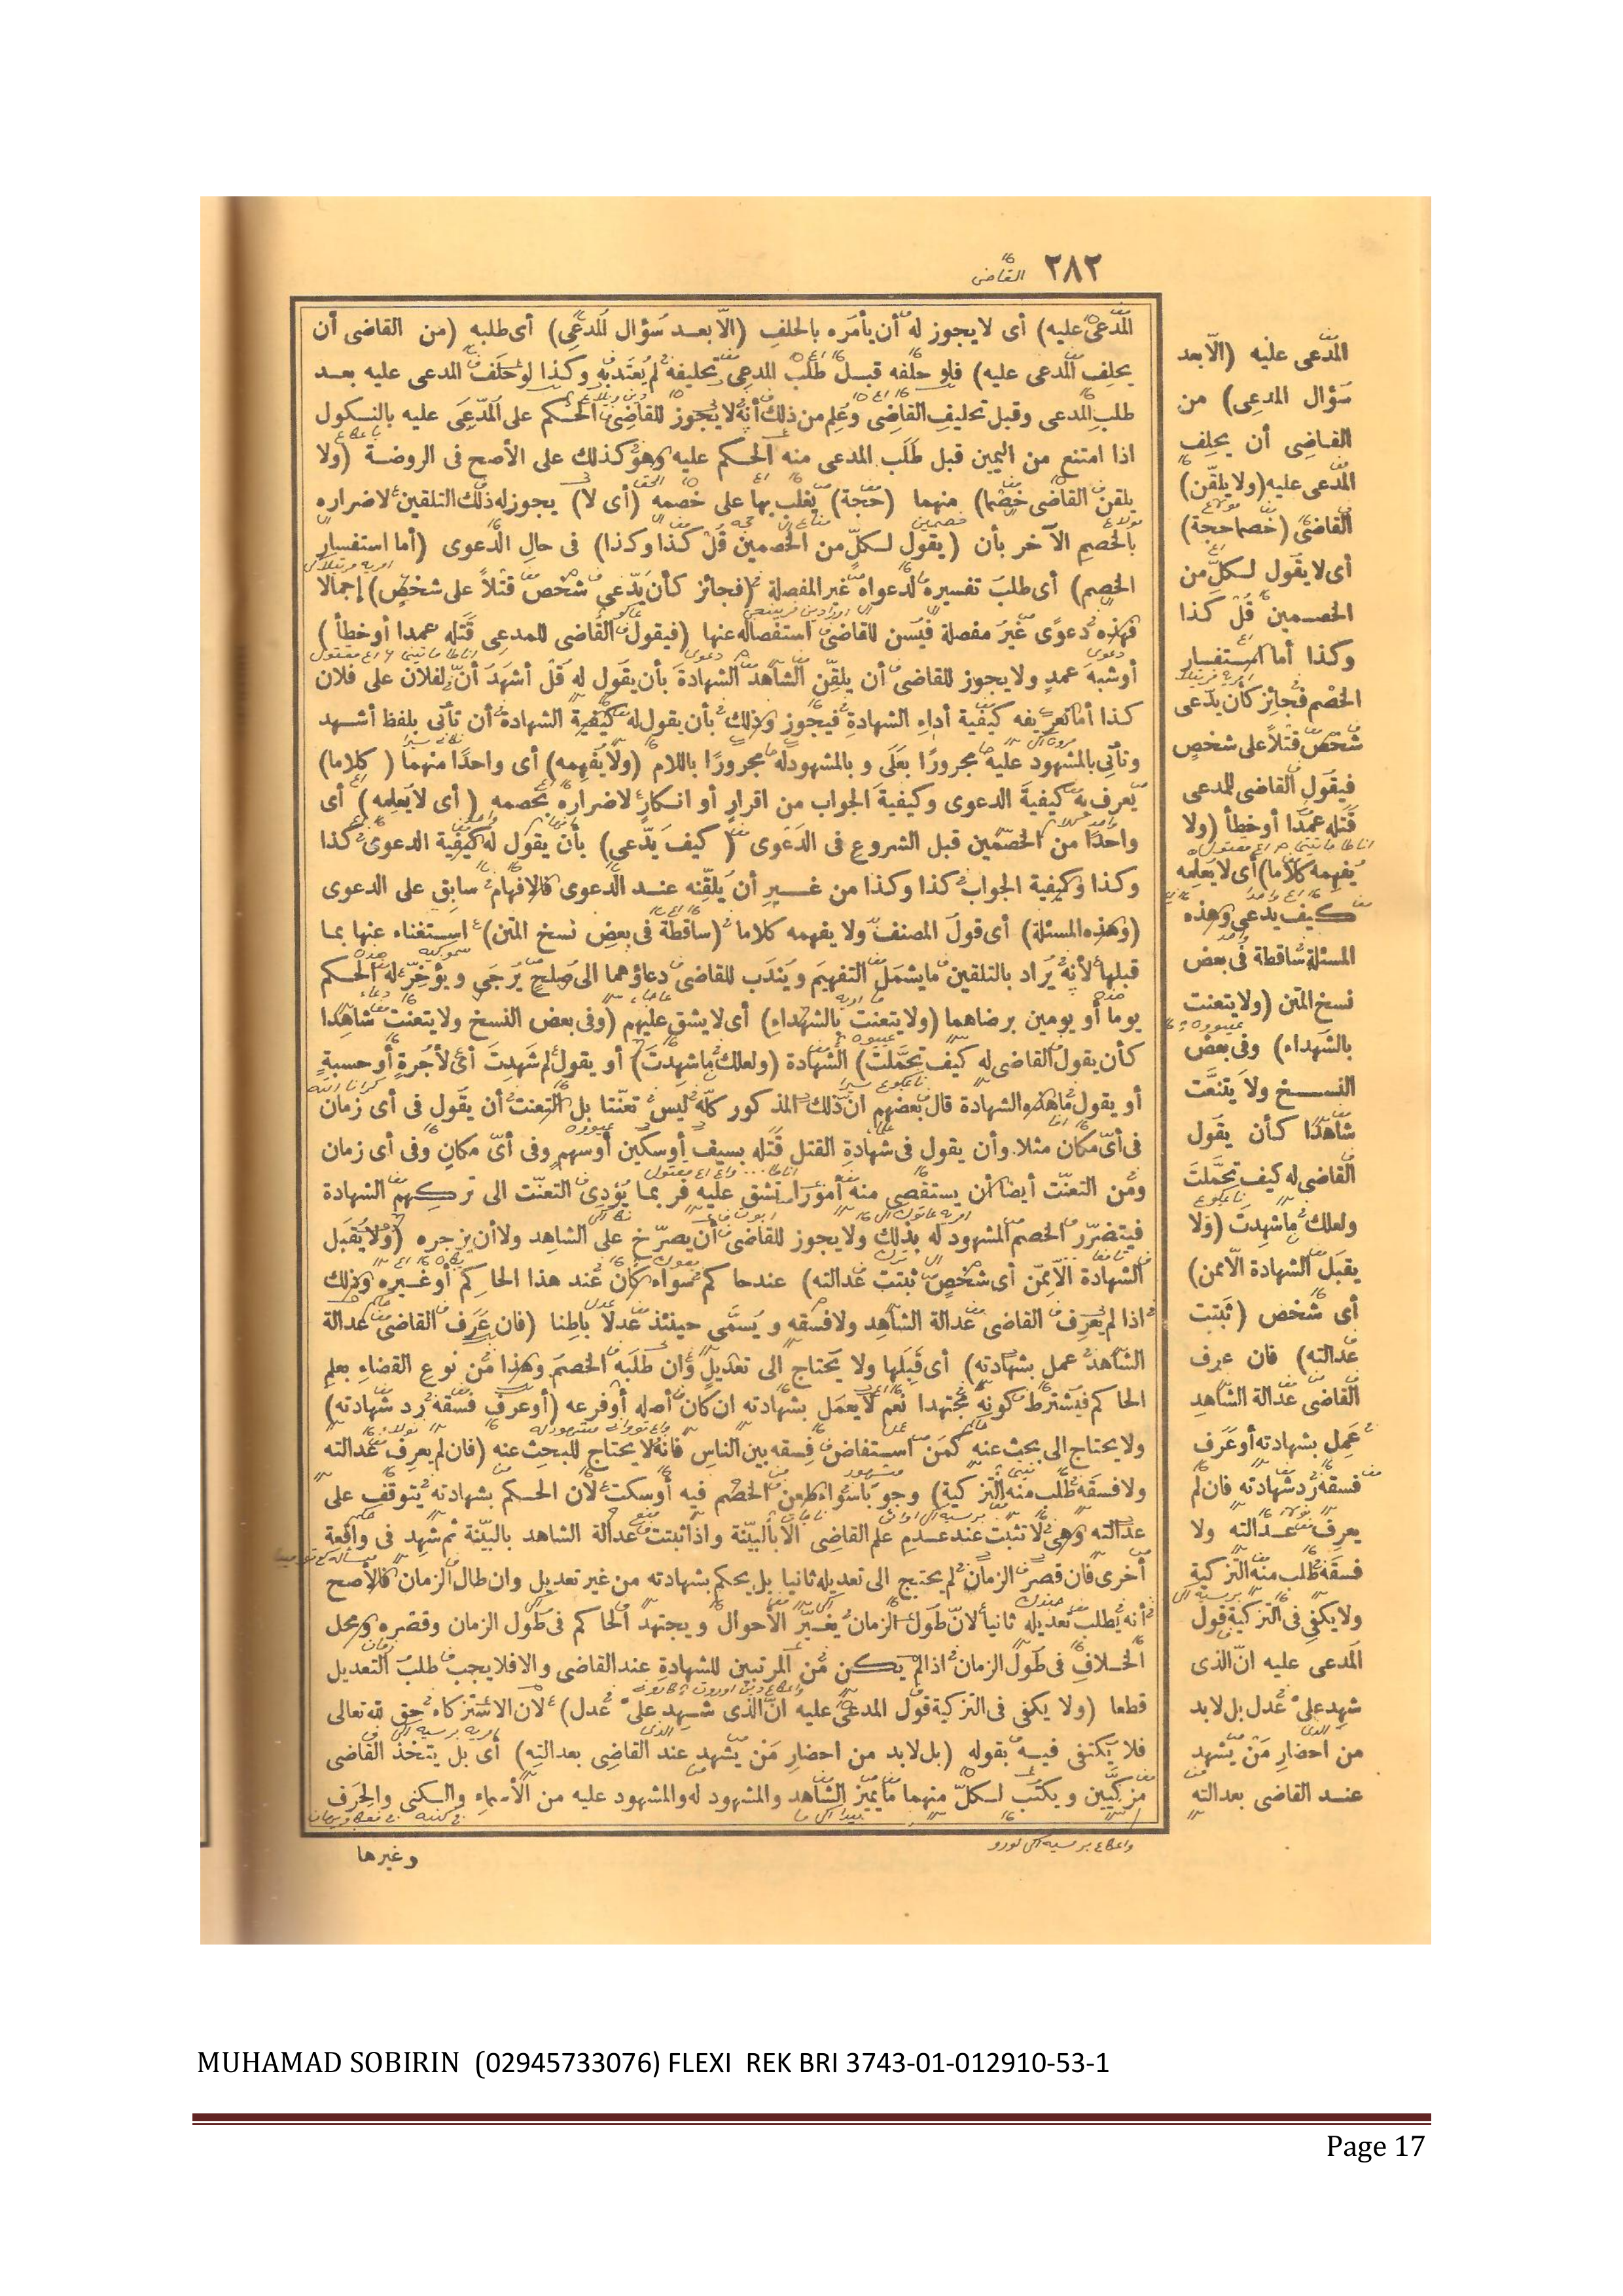 ٢٨٢
القاضى
المدعى عليه) أى لا يجوز له أن يأمره بالحلف (الا بعد سؤال المدعى) أى طلبه (من القاضى أن
يحلف المدعى عليه) فلو حلفه قبل طلب المدعى تحليفه لم يعتد به وكذا لو حلف المدعى عليه بعد
طلب المدعى وقبل تحليف القاضى وعلم من ذلك أنه لا يجوز للقاضى الحكم على المدعى عليه بالنكول
اذا امتنع من اليمين قبل طلب المدعى منه الحكم عليه وهو كذلك على الأصح فى الروضة (ولا
يلقن القاضى خصما) منهما (حجة) يغلب بها على خصمه (أى لا) يجوز له ذلك التلقين لاضراره
بالخصم الآخر بأن (يقول لكل من الخصمين قل كذا وكذا) فى حال الدعوى (أما استفسار
الخصم) أى طلب تفسيره لدعواه غير المفصلة (فجائز كأن يدعى شخص قتلا على شخص) إجمالا
فهذه دعوى غير مفصلة فيسن للقاضى استفصاله عنها (فيقول القاضى للمدعى قتله عمدا أو خطأ)
أو شبه عمد ولا يجوز للقاضى أن يلقن الشاهد الشهادة بأن يقول له قل أشهد أن لفلان على فلان
كذا أما تعريفه كيفية أداء الشهادة فيجوز وذلك بأن يقول له كيفية الشهادة أن تأتى بلفظ أشهد
وتأتى بالمشهود عليه مجرورا بعلى وبالمشهود له مجرورا باللام (ولا يفهمه) أى واحدا منهما (كلاما)
يعرف به كيفية الدعوى وكيفية الجواب من اقرار أو انكار لاضراره بخصمه (أى لا يعلمه) أى
واحدا من الخصمين قبل الشروع فى الدعوى (كيف يدعى) بأن يقول له كيفية الدعوى كذا
وكذا وكيفية الجواب كذا وكذا من غير أن يلقنه عند الدعوى فالافهام سابق على الدعوى
(وهذه المسئلة) أى قول المصنف ولا يفهمه كلاما (ساقطة فى بعض نسخ المتن) استغناء عنها بما
قبلها لأنه يراد بالتلقين ما يشمل التفهيم ويندب للقاضى دعاؤهما الى صلح يرجى ويؤخر له الحكم
يوما أو يومين برضاهما (ولا يتعنت بالشهداء) أى لا يشق عليهم (وفى بعض النسخ ولا يتعنت شاهدا
كأن يقول القاضى له كيف تحملت) الشهادة (ولعلك ما شهدت) أو يقول لم شهدت أى لأجرة أو حسبة
أو يقول ما هذه الشهادة قال بعضهم ان ذلك المذكور كله ليس تعنتا بل التعنت أن يقول فى أى زمان
فى أى مكان مثلا وأن يقول فى شهادة القتل قتله بسيف أو سكين أو سهم وفى أى مكان وفى أى زمان
ومن التعنت أيضا أن يستقصى منه أمورا تشق عليه فربما يؤدى التعنت الى تركهم الشهادة
فيتضرر الخصم المشهود له بذلك ولا يجوز للقاضى أن يصرخ على الشاهد ولا أن يزجره (ولا يقبل
الشهادة الا ممن أى شخص ثبتت عدالته) عند حاكم سواء كان عند هذا الحاكم أو غيره وذلك
اذا لم يعرف القاضى عدالة الشاهد ولا فسقه ويسمى حينئذ عدلا باطنا (فان عرف القاضى عدالة
الشاهد عمل بشهادته) أى قبلها ولا يحتاج الى تعديل وان طلبه الخصم وهذا من نوع القضاء بعلم
الحاكم فيشترط كونه مجتهدا نعم لا يعمل بشهادته ان كان أصله أو فرعه (أو عرف فسقه رد شهادته)
ولا يحتاج الى بحث عنه كمن استفاض فسقه بين الناس فانه لا يحتاج للبحث عنه (فان لم يعرف عدالته
ولا فسقه طلب منه التزكية) وجوبا سواء طعن الخصم فيه أو سكت لان الحكم بشهادته يتوقف على
عدالته وهى لا تثبت عند عدم علم القاضى الا بالبينة واذا ثبتت عدالة الشاهد بالبينة ثم شهد فى واقعة
أخرى فان قصر الزمان لم يحتج الى تعديله ثانيا بل يحكم بشهادته من غير تعديل وان طال الزمان فالأصح
أنه يطلب تعديله ثانيا لان طول الزمان يغير الأحوال ويجتهد الحاكم فى طول الزمان وقصره ومحل
الخلاف فى طول الزمان اذا لم يكن من المرتبين للشهادة عند القاضى والا فلا يجب طلب التعديل
قطعا (ولا يكفى فى التزكية قول المدعى عليه ان الذى شهد على عدل) لان الاستزكاء حق لله تعالى
فلا يكتفى فيه بقوله (بل لا بد من احضار من يشهد عند القاضى بعدالته) أى بل يتخذ القاضى
مزكيين ويكتب لكل منهما ما يميز الشاهد والمشهود له والمشهود عليه من الأسماء والكنى والحرف
وغيرها
المدعى عليه (الا بعد
سؤال المدعى) من
القاضى أن يحلف
المدعى عليه (ولا يلقن)
القاضى (خصما حجة)
أى لا يقول لكل من
الخصمين قل كذا
وكذا أما استفسار
الخصم فجائز كأن يدعى
شخص قتلا على شخص
فيقول القاضى للمدعى
قتله عمدا أو خطأ (ولا
يفهمه كلاما) أى لا يعلمه
كيف يدعى وهذه
المسئلة ساقطة فى بعض
نسخ المتن (ولا يتعنت
بالشهداء) وفى بعض
النسخ ولا يتعنت
شاهدا كأن يقول
القاضى له كيف تحملت
ولعلك ما شهدت (ولا
يقبل الشهادة الا ممن)
أى شخص (ثبتت
عدالته) فان عرف
القاضى عدالة الشاهد
عمل بشهادته أو عرف
فسقه رد شهادته فان لم
يعرف عدالته ولا
فسقه طلب منه التزكية
ولا يكفى فى التزكية قول
المدعى عليه ان الذى
شهد على عدل بل لا بد
من احضار من يشهد
عند القاضى بعدالته
MUHAMAD SOBIRIN (02945733076) FLEXI REK BRI 3743-01-012910-53-1
Page 17